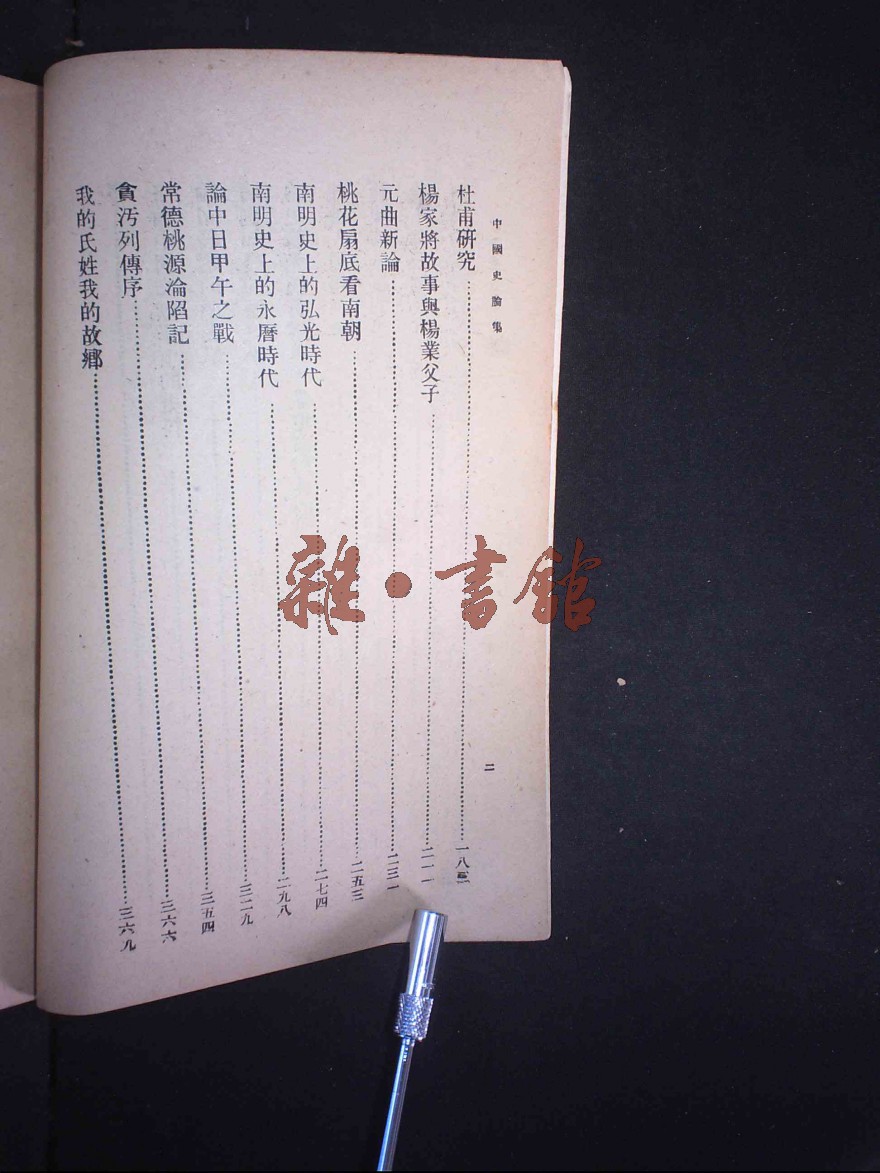 中國史論集
二
杜甫研究……一八三
楊家將故事與楊業父子……二一一
元曲新論……二三一
桃花扇底看南朝……二五三
南明史上的弘光時代……二七四
南明史上的永曆時代……二九八
論中日甲午之戰……三二九
常德桃源淪陷記……三五四
貪汚列傳序……三六六
我的氏姓我的故鄉……三六九
雜·書館